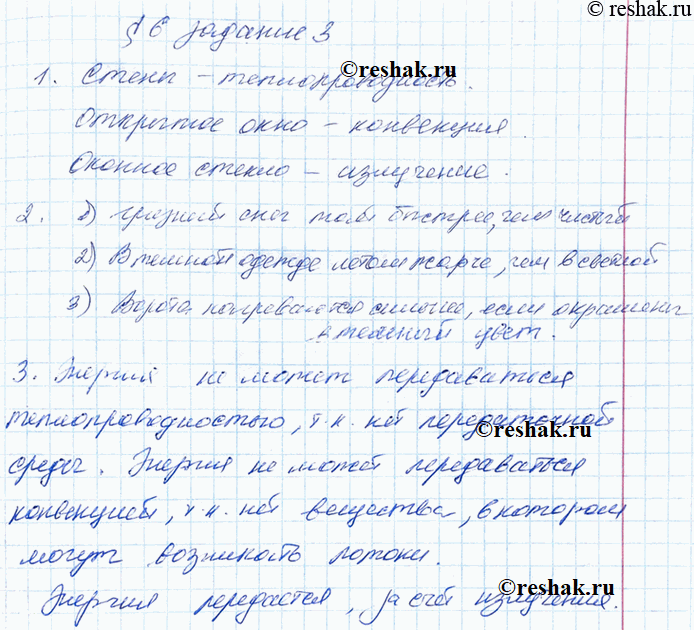 © reshak.ru
§ 6 задание 3
©reshak.ru
1. Стены – теплопроводность.
Открытое окно – конвекция.
Оконное стекло – излучение.
2. 1) грязный снег тает быстрее, чем чистый
2) В темной одежде летом жарче, чем в светлой
3) Ворота нагреваются сильнее, если окрашены
в темный цвет.
3. Энергия не может передаваться
теплопроводностью, т.к. нет передаточной
©reshak.ru
среды. Энергия не может передаваться
конвекцией, т.к. нет вещества, в котором
могут возникать потоки.
©reshak.ru
Энергия передается, за счет излучения.